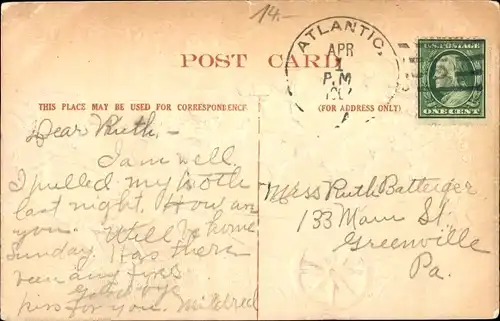 14.-
ATLANTIC,
APR
1
P.M
U.S. POSTAGE
ONE CENT
POST CARD
THIS PLACE MAY BE USED FOR CORRESPONDENCE
(FOR ADDRESS ONLY)
Dear Ruth,-
I am well.
I pulled my tooth
last night. How are
you. Will be home
Sunday. Has there
been any fires
kiss for you. Mildred
Miss Ruth Batteiger
133 Main St.
Greenville
Pa.